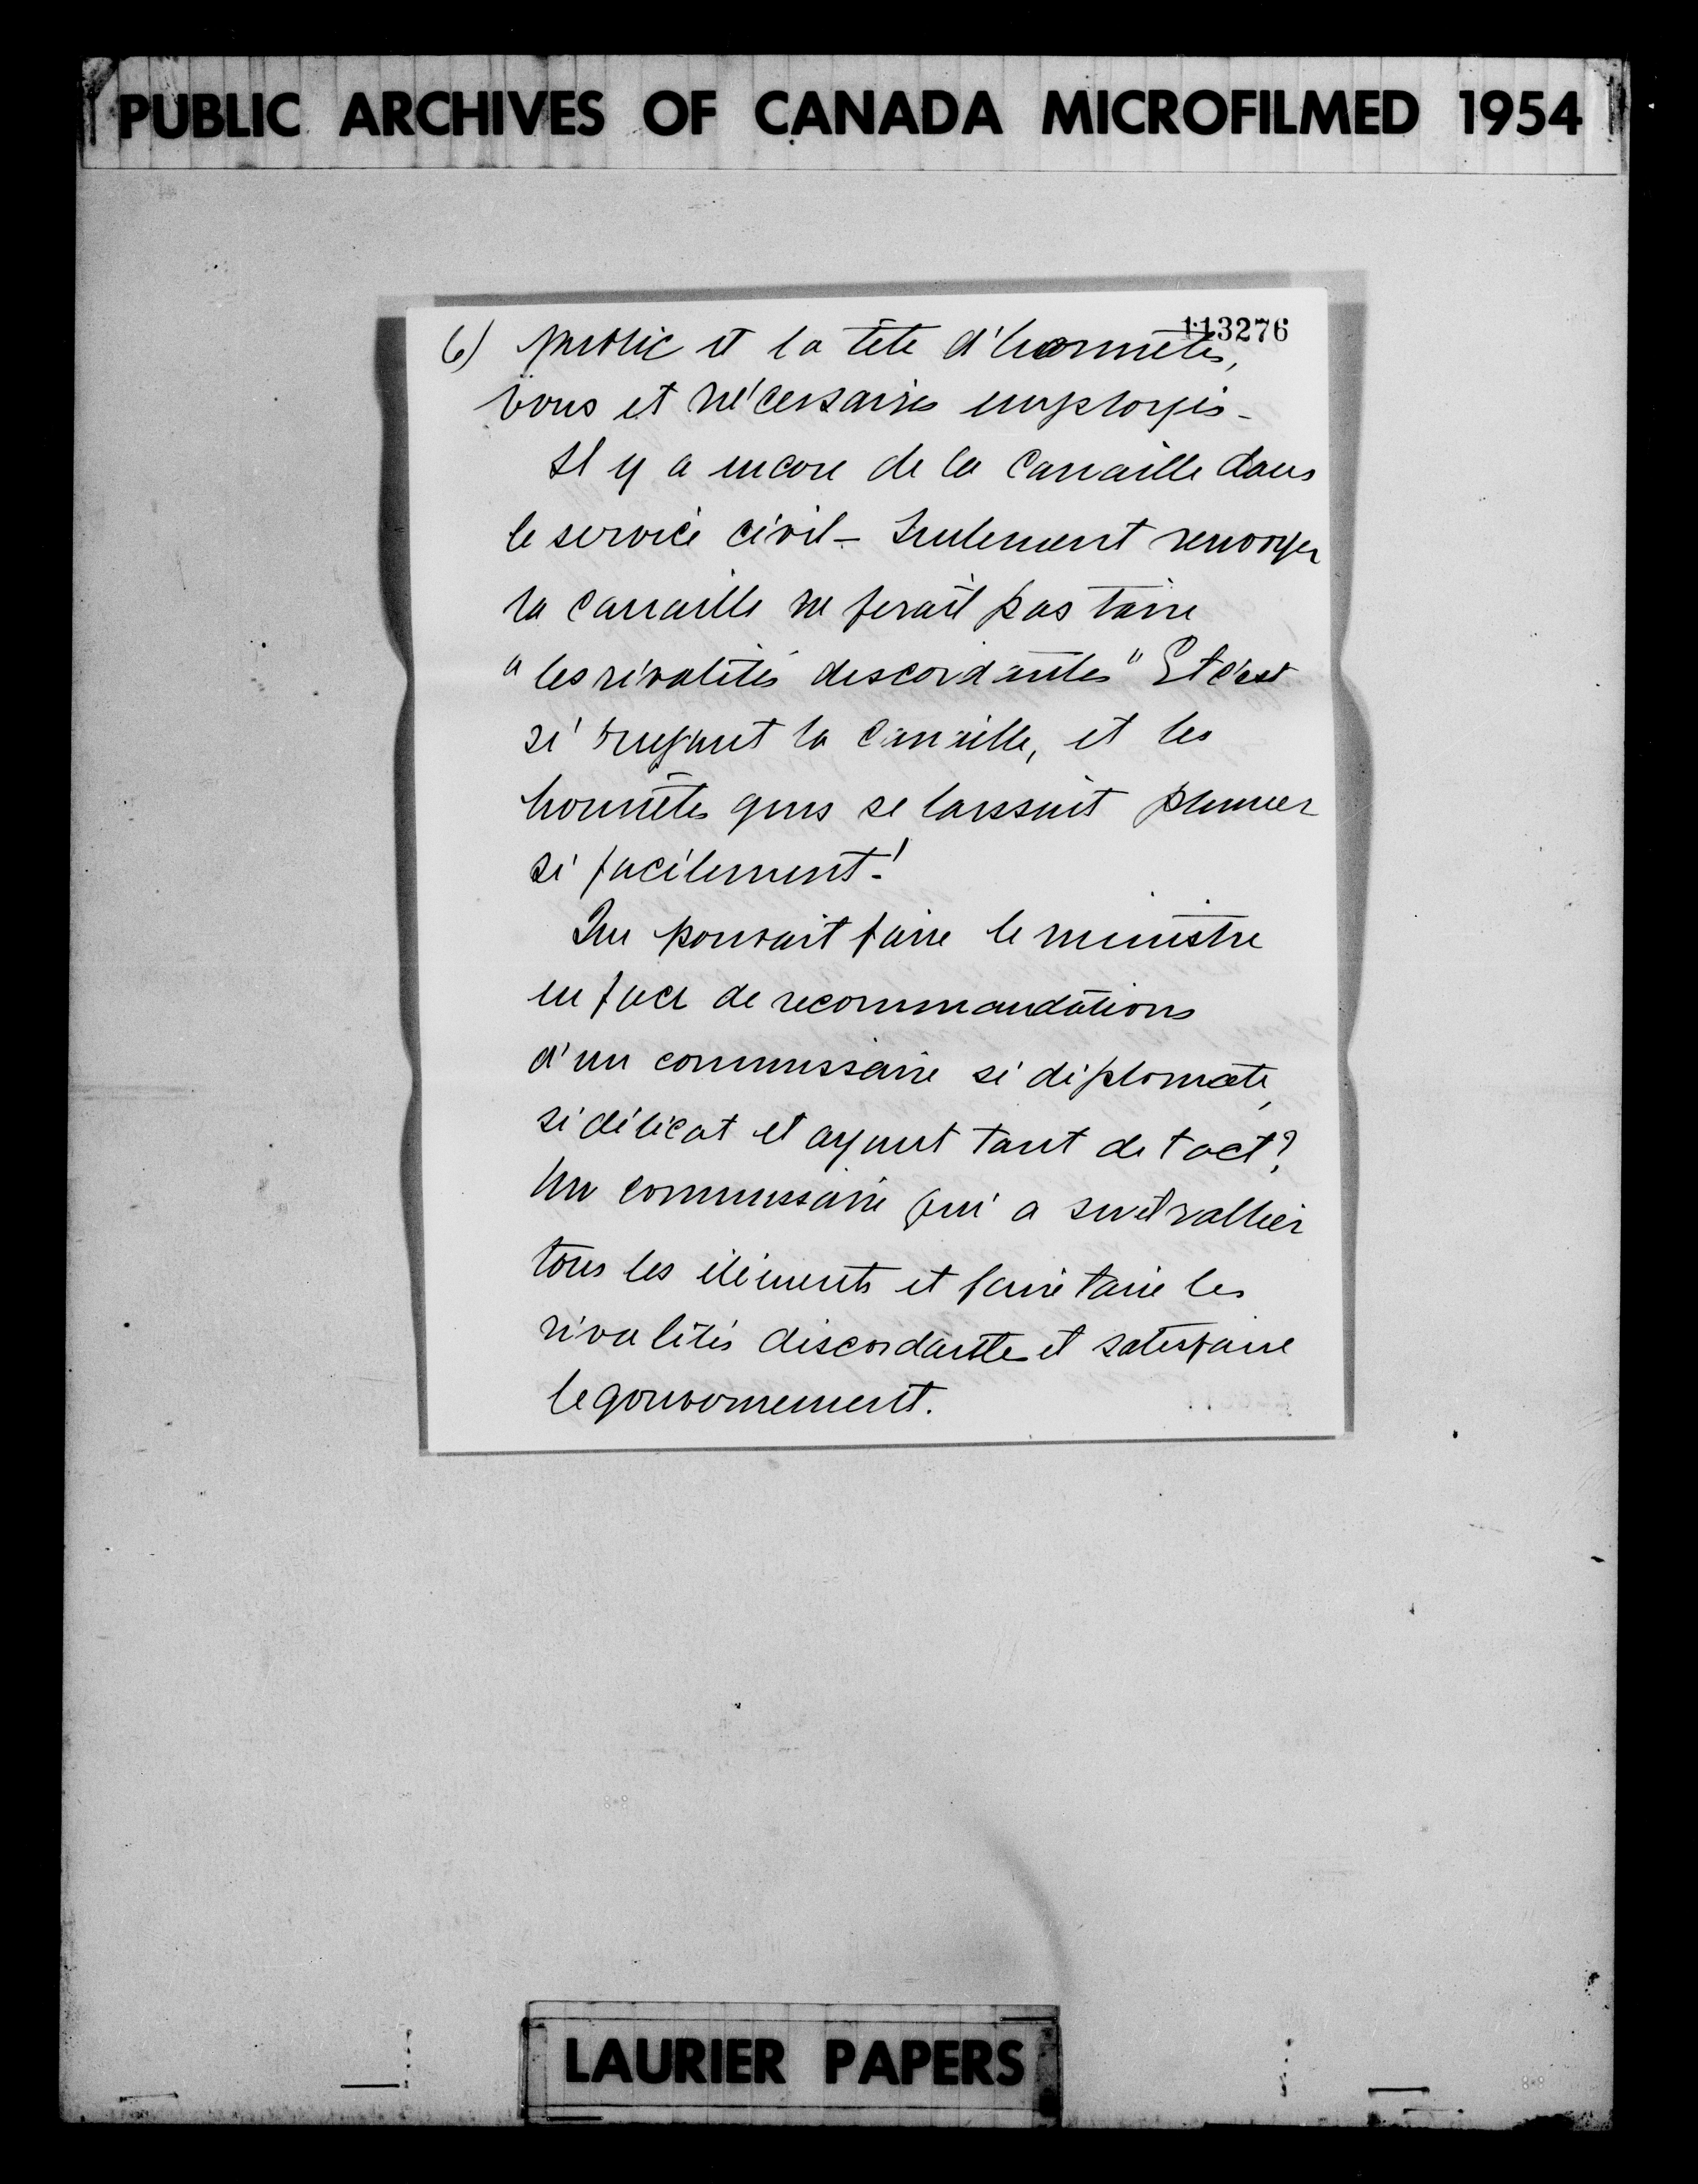 PUBLIC ARCHIVES OF CANADA MICROFILMED 1954
113276
6) public et la tête d'honnêtes,
bons et nécessaires employés -
Il y a encore de la canaille dans
le service civil - Seulement renvoyer
la canaille ne ferait pas taire
"les rivalités discordantes" Et c'est
si la canaille, et les
honnêtes gens se laissent plumer
si facilement !
Que pouvait faire le ministre
en face de recommandations
d'un commissaire si diplomate,
si délicat et ayant tant de tact ?
Un commissaire qui a su rallier
tous les éléments et faire taire les
rivalités discordantes et satisfaire
le gouvernement.
LAURIER PAPERS